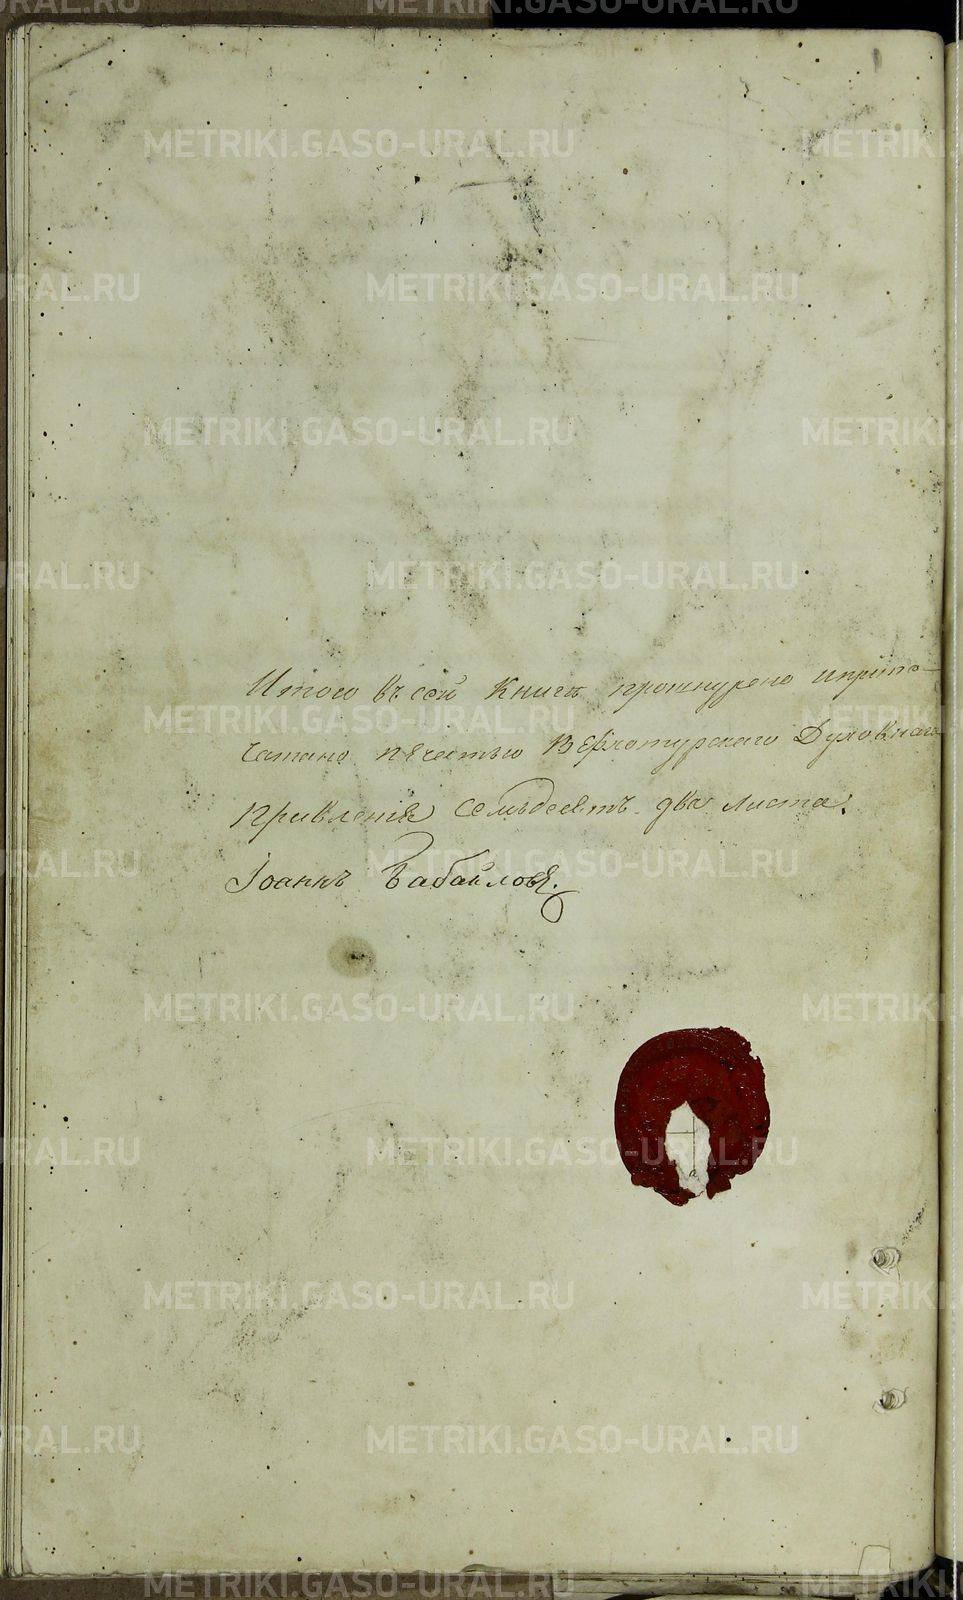 METRIKI.GASO-URAL.RU
Итого въ сей Книгѣ прошнурено иприпе-
чатано печатью Верхотурскаго Духовнаго
Правленія Семьдесятъ два листа.
Іоаннъ Бабайловъ.